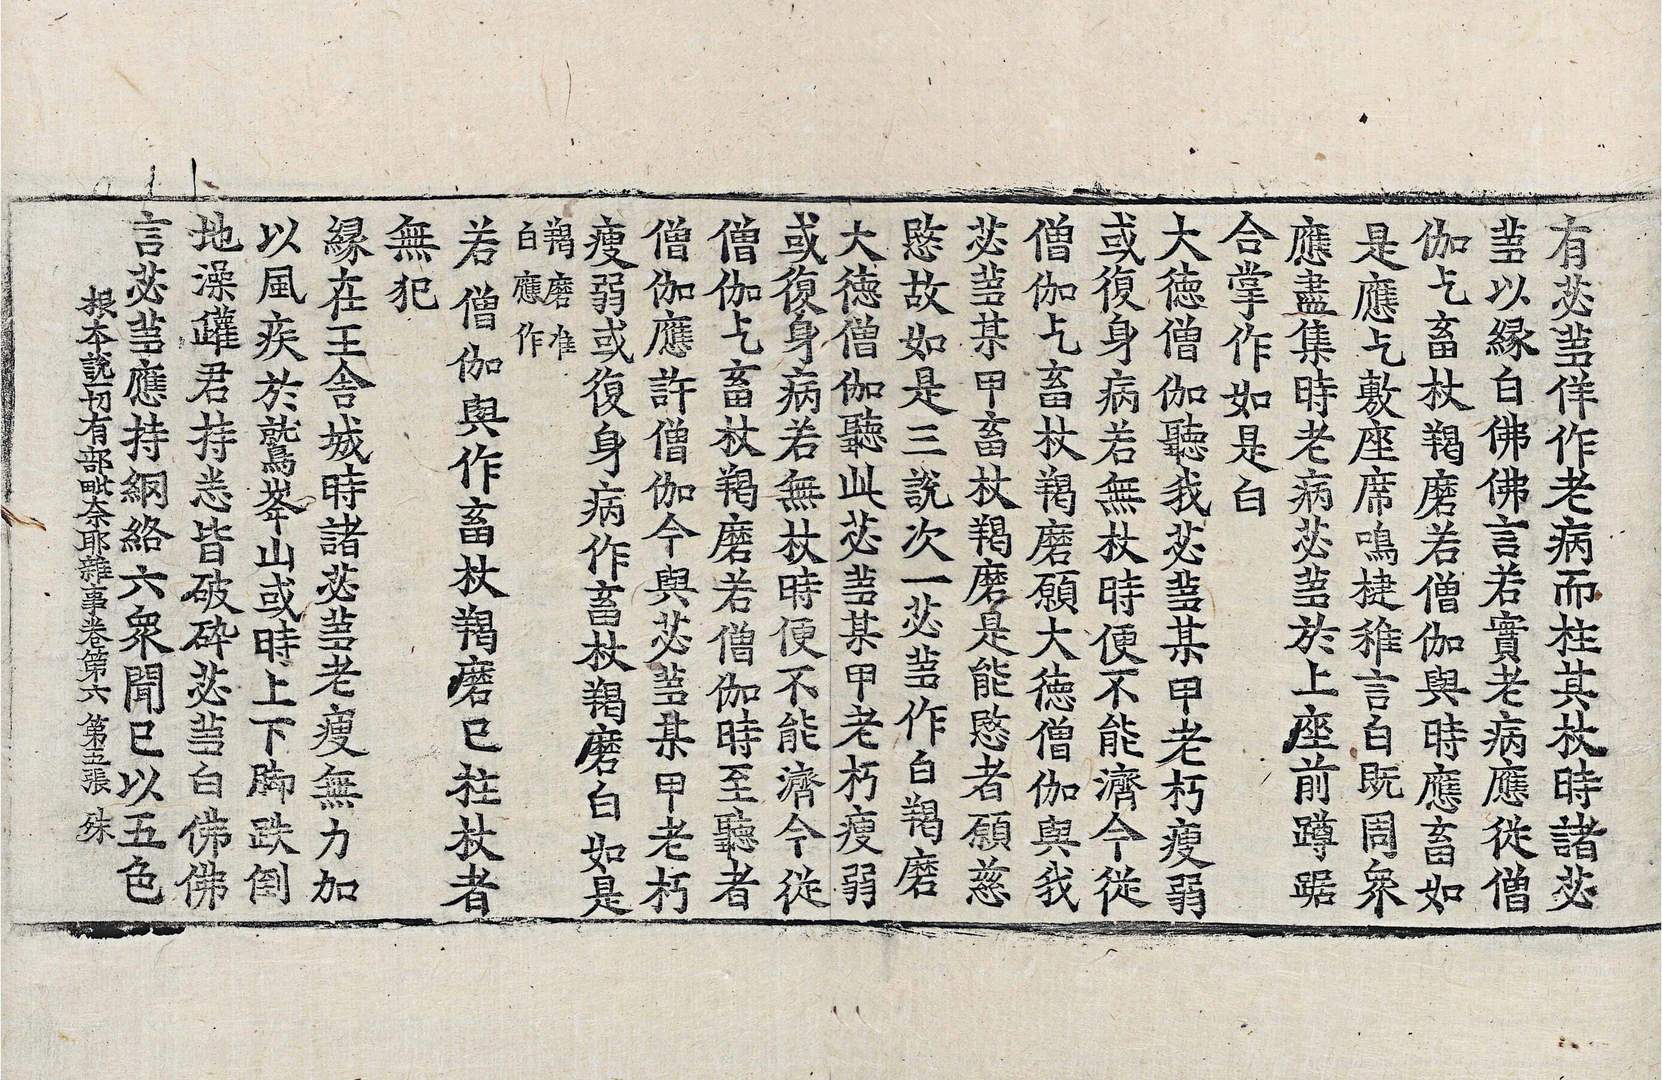 有苾蒭佯作老病而柱其杖時諸苾
蒭以緣白佛佛言若實老病應從僧
伽乞畜杖羯磨若僧伽與時應畜如
是應乞敷座席鳴揵稚言白既周衆
應盡集時老病苾蒭於上座前蹲踞
合掌作如是白
大徳僧伽聽我苾蒭某甲老朽瘦弱
或復身病若無杖時便不能濟今從
僧伽乞畜杖羯磨願大徳僧伽與我
苾蒭某甲畜杖羯磨是能愍者願慈
愍故如是三說次一苾蒭作白羯磨
大徳僧伽聽此苾蒭某甲老朽瘦弱
或復身病若無杖時便不能濟今從
僧伽乞畜杖羯磨若僧伽時至聽者
僧伽應許僧伽今與苾蒭某甲老朽
瘦弱或復身病作畜杖羯磨白如是
羯磨准
白應作
若僧伽與作畜杖羯磨已柱杖者
無犯
緣在王舍城時諸苾蒭老瘦無力加
以風疾於鷲峯山或時上下脚跌倒
地澡鑵君持悉皆破碎苾蒭白佛佛
言苾蒭應持網絡六衆聞已以五色
根本說一切有部毗奈耶雜事卷第六 第五張 殊